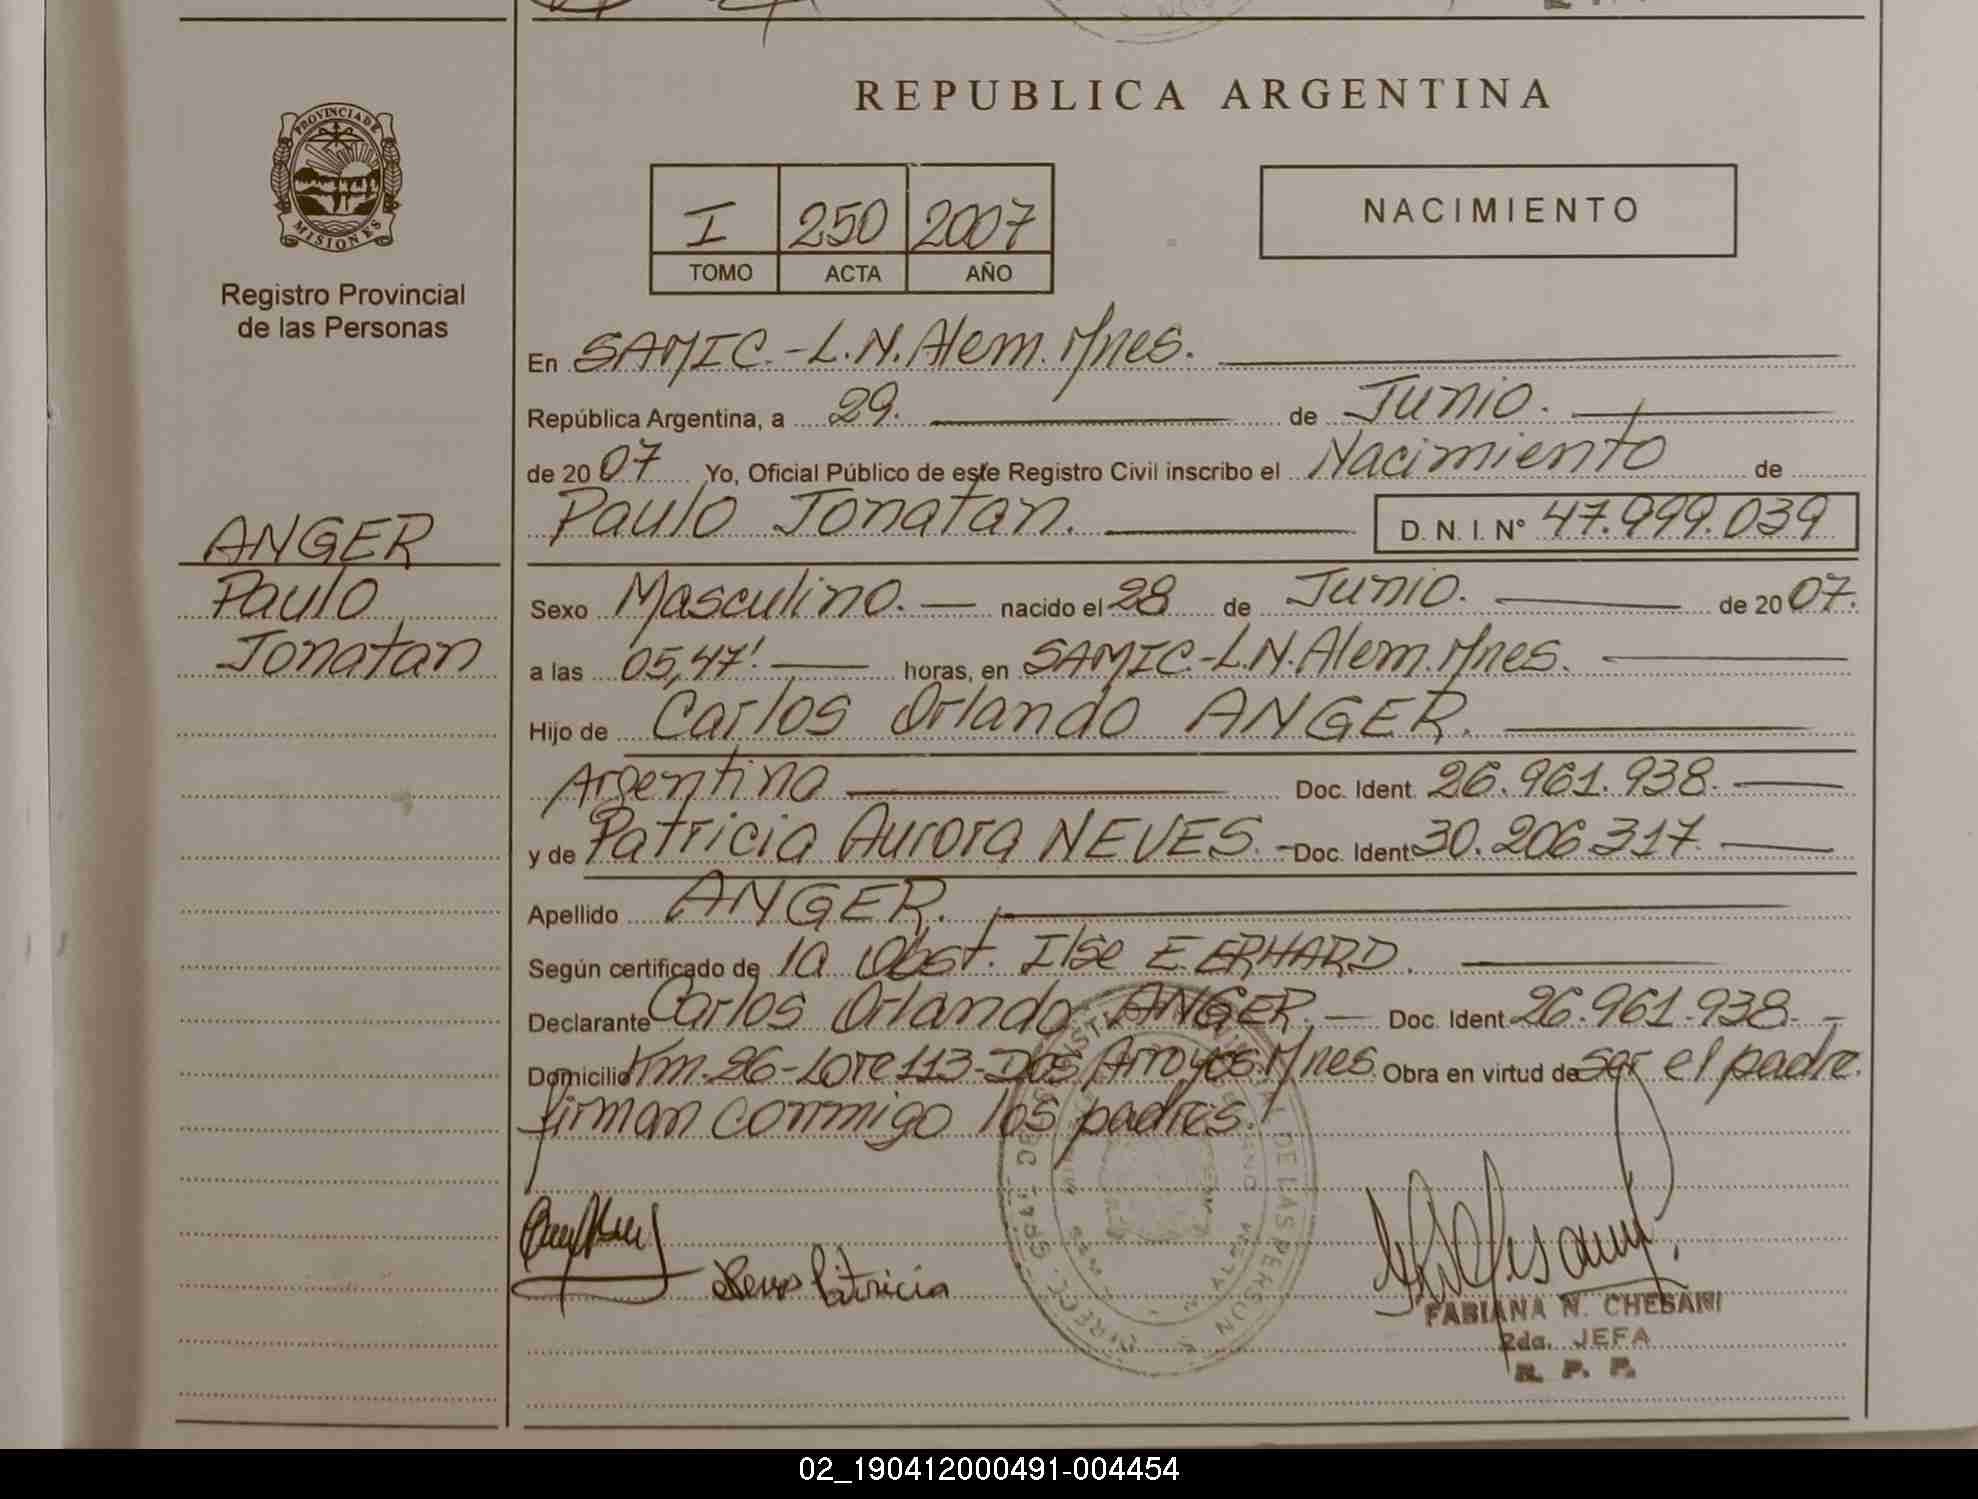 REPUBLICA ARGENTINA
PROVINCIA DE
MISIONES
Registro Provincial
de las Personas
I 250 2007
TOMO ACTA AÑO
NACIMIENTO
En SAMIC.-L.N.Alem.Mnes.
República Argentina, a 29. de Junio.
de 2007 Yo, Oficial Público de este Registro Civil inscribo el Nacimiento de
Paulo Jonatan. D. N. I. N° 47.999.039
ANGER
Paulo
Jonatan
Sexo Masculino. nacido el 28 de Junio. de 2007.
a las 05,47' horas, en SAMIC.-L.N.Alem.Mnes.
Hijo de Carlos Orlando ANGER.
Argentino Doc. Ident. 26.961.938.
y de Patricia Aurora NEVES. - Doc. Ident 30.206.317.
Apellido ANGER.
Según certificado de la Obst. Ilse E. ERHARD.
Declarante Carlos Orlando ANGER. Doc. Ident. 26.961.938.
Domicilio Km.26-Lote 113-Dos Arroyos Mnes. Obra en virtud de ser el padre.
firman conmigo los padres.
Neves Patricia
FABIANA N. CHESANI
2da. JEFA
R. P. P.
02_190412000491-004454